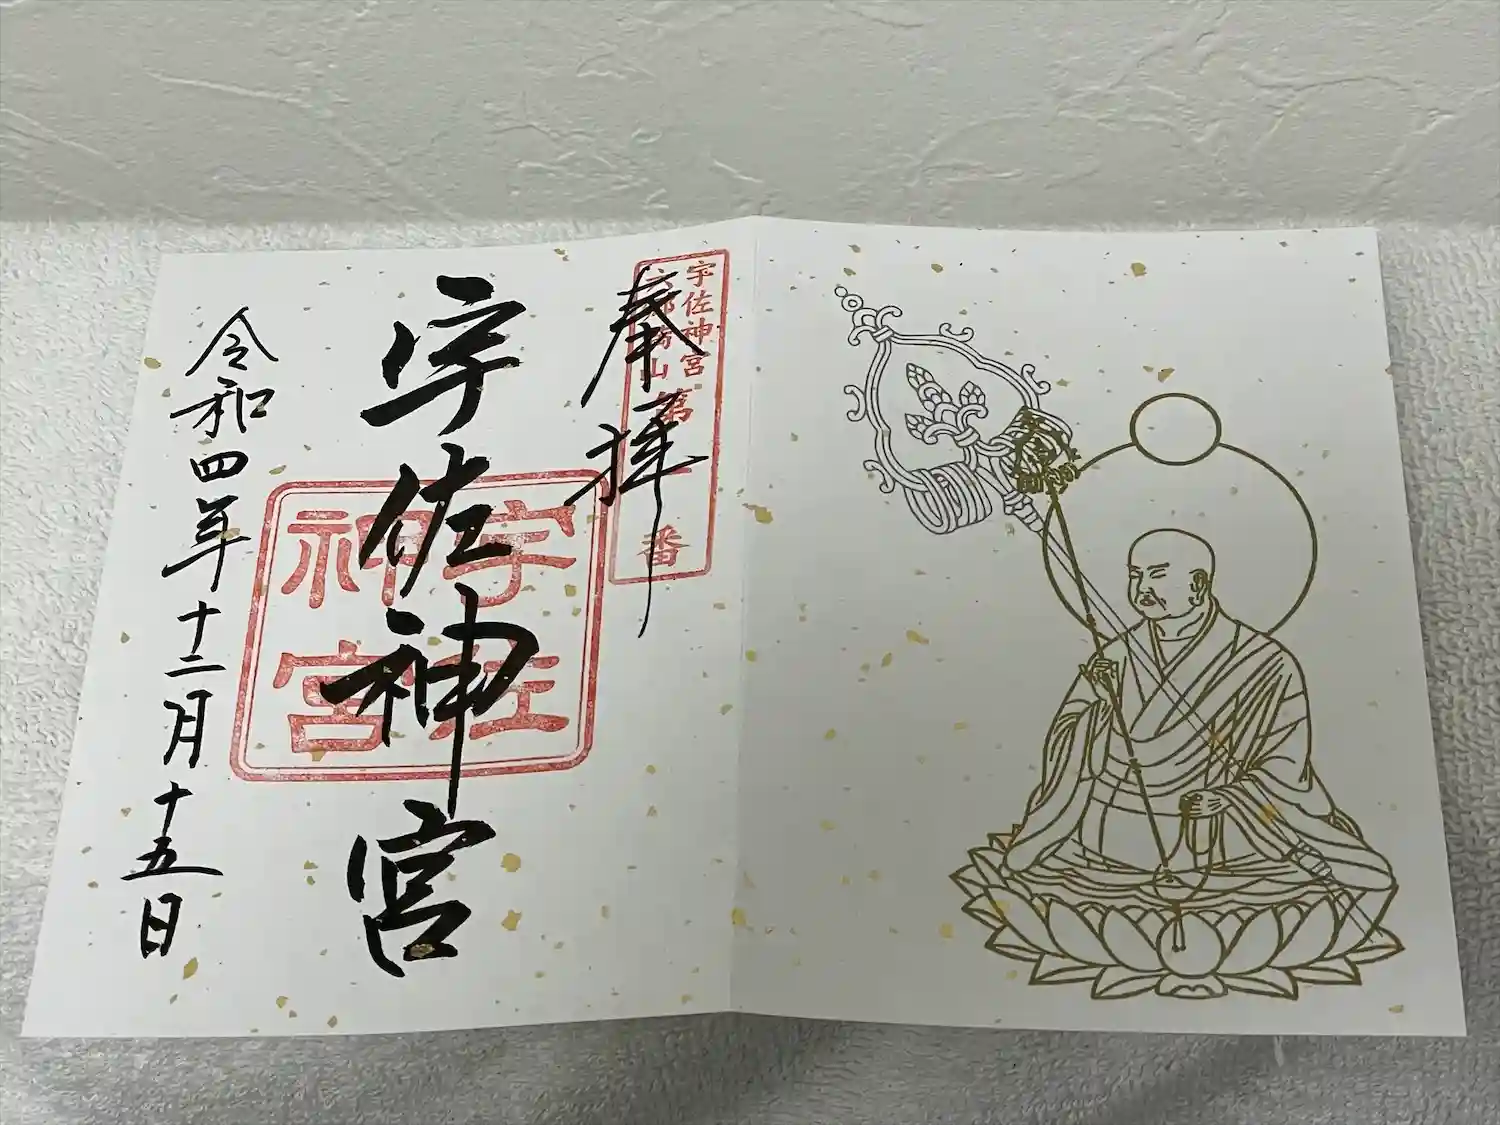 奉拝
宇佐神宮
六郷満山
第一番
宇佐神宮
宇佐
神宮
令和四年十二月十五日